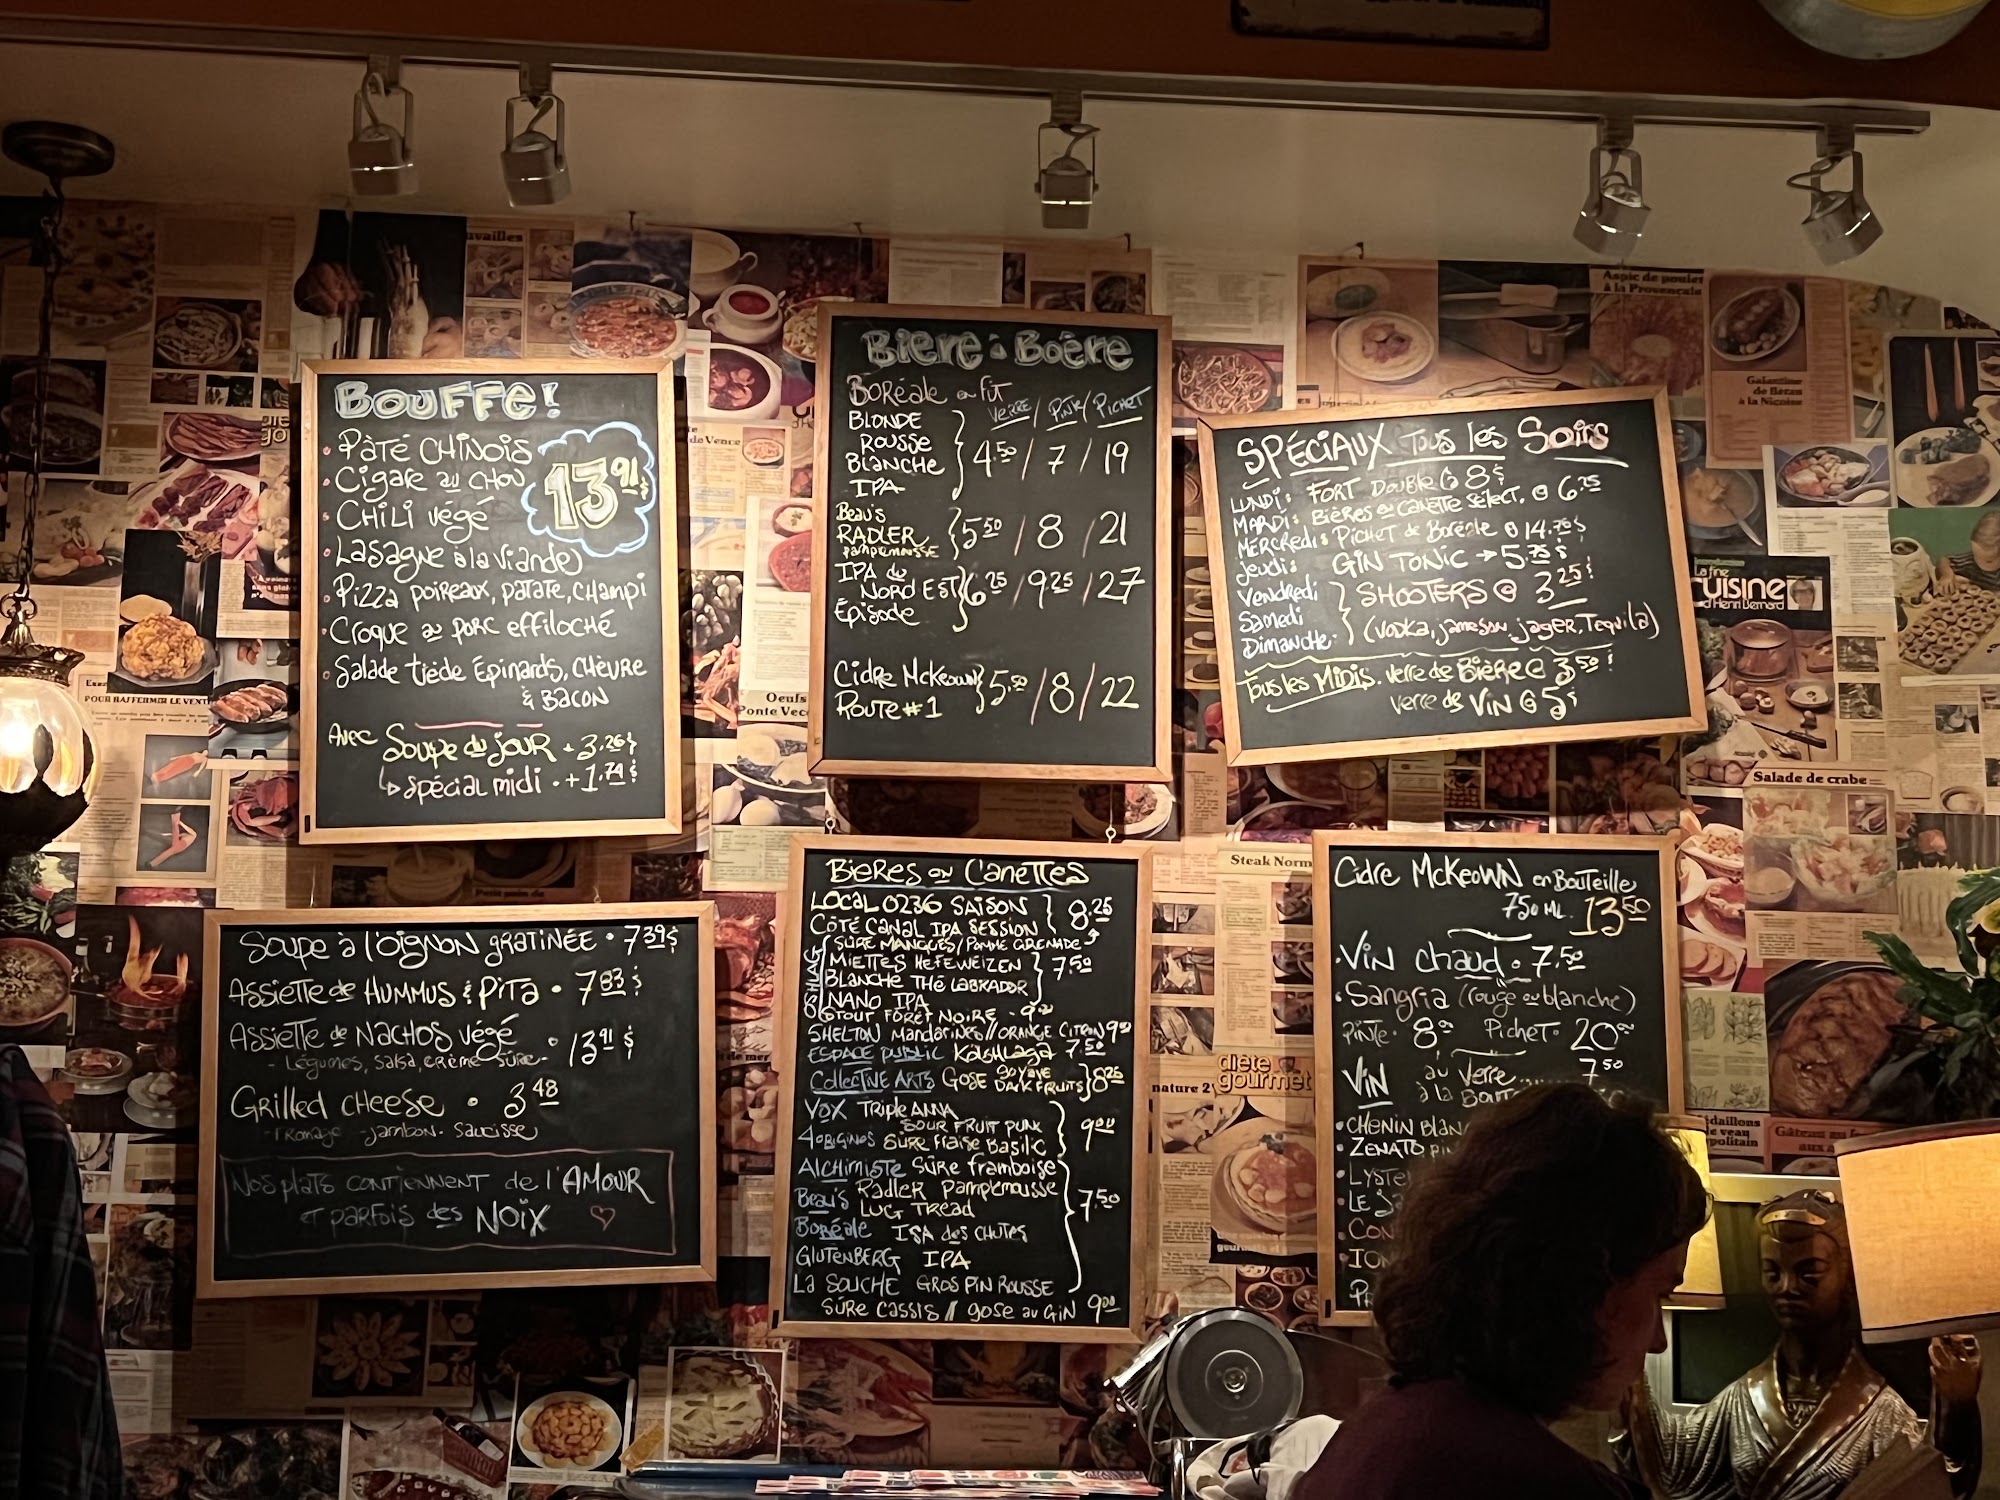 BOUFFE!
• PÂTÉ CHINOIS
• Cigare au CHOU
• CHILI végé
• Lasagne à la viande
• Pizza poireaux, patate, champi
• Croque au porc effiloché
• Salade tiède Épinards, CHÈVRE
& BACON
13.91$
AVEC Soupe du JOUR + 3.26$
↳ Spécial midi • +1.74$
Bière à Boère
Boréale en fût
VERRE / PINTE / PICHET
BLONDE
ROUSSE
BlANCHE
IPA
4.50 / 7 / 19
Beau's
RADLER
Pamplemousse
5.50 / 8 / 21
IPA du
NORD EST
Épisode
6.25 / 9.25 / 27
Cidre McKeown
ROUTE #1
5.50 / 8 / 22
SPÉCIAUX TOUS les SOIRS
LUNDI: FORT DOUBLE @ 8$
MARDI: Bières en canette sélect. @ 6.25
MERCREDI: PICHET de Boréale @ 14.75$
Jeudi: GIN TONIC → 5.75$
Vendredi
Samedi
Dimanche
SHOOTERS @ 3.25$
(VODKA, Jameson, Jager, Tequil(a)
Tous les MIDIS. verre de Bière @ 3.50$
verre de VIN @ 5$
Soupe à l'oignon gratinée • 7.39$
Assiette de HUMMUS & PITA • 7.83$
Assiette de NACHOS végé • 13.91$
- Légumes, salsa, crème sûre -
Grilled cheese • 3.48
- Fromage - jambon - saucisse
Nos plats contiennent de l'AMOUR
et parfois des NOIX ♡
Bières en Canettes
LOCAL 0236 SAISON
CÔTÉ CANAL IPA SESSION
8.25
SURE MANGUES/POMME GRENADE
MIETTES HEFEWEIZEN
BLANCHE THÉ LABRADOR
NANO IPA
7.50
STOUT FORÊT NOIRE - 9.00
SHELTON Mandarines // ORANGE CITRON 9.00
ESPACE PUBLIC Kalshlaga 7.50
Collective ARTS GOSE goyave
DARK FRUITS
8.25
VOX Triple ANNA
SOUR FRUIT PUNK
4 ORIGINES SURE fraise Basilic
9.00
Alchimiste Sûre framboise
Beau's Radler Pamplemousse
LUG TREAD
Boréale ISA des CHUTES
GLUTENBERG IPA
LA SOUCHE GROS PIN ROUSSE
7.50
SÛRE CASSIS // gose au GIN 9.00
Cidre McKeown en Bouteille
750 ML. 13.50
• Vin chaud • 7.50
• Sangria (rouge ou blanche)
Pinte • 8.00 Pichet • 20.00
VIN au Verre 7.50
à la
• CHENIN BLANC
• ZENATO
• LE
uvailles
Aspic de poulet
à la Provençale
Galantine
de Bécas
à la Niçoise
La fine
cuisine
d'Henri Bernard
Salade de crabe
Steak Norm
Oeufs
Ponte Vec
de Vence
POUR RAFFERMIR LE VENT
diète
gourmet
nature 2